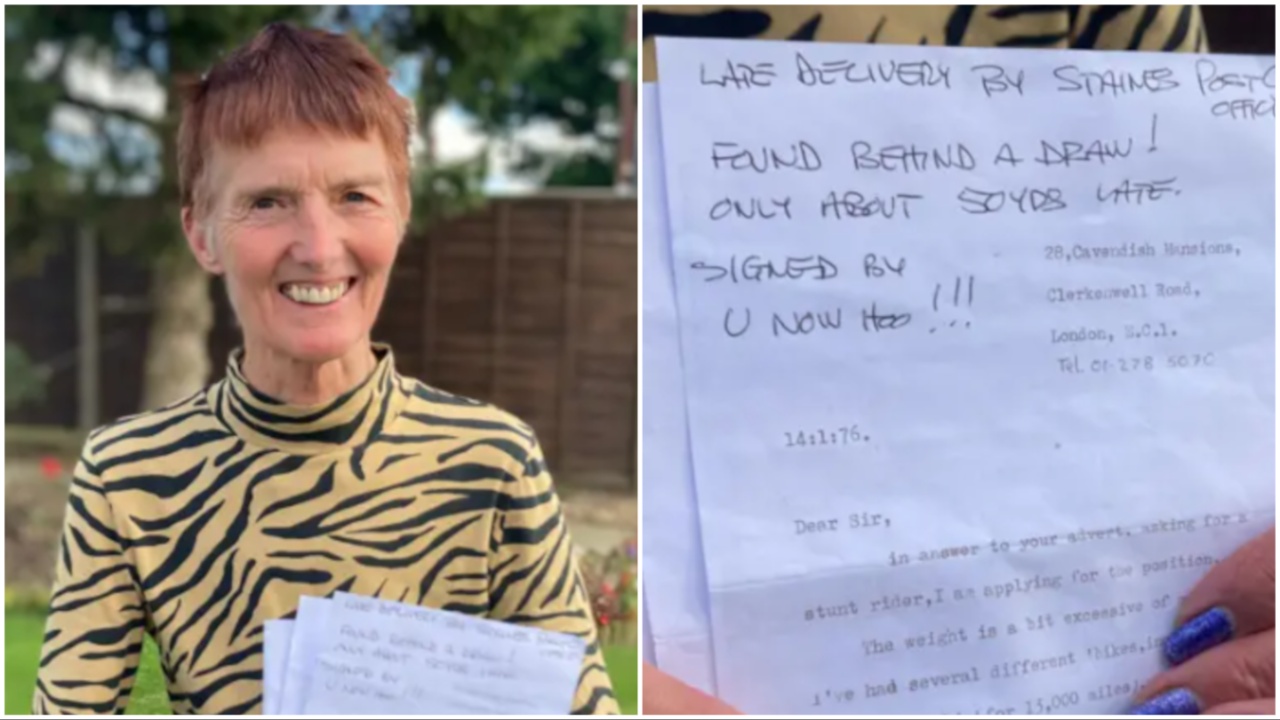 LATE DELIVERY BY STAINES POST
OFFIC
FOUND BEHIND A DRAW!
ONLY ABOUT 50YDS LATE.
SIGNED BY
U NOW HOO !!!
28,Cavendish Mansions,
Clerkenwell Road,
London, E.C.1.
Tel. 01-278 5070
14:1:76.
Dear Sir,
in answer to your advert, asking for a
stunt rider,I am applying for the position.
The weight is a bit excessive of
i've had several different 'bikes,in
for 15,000 miles)